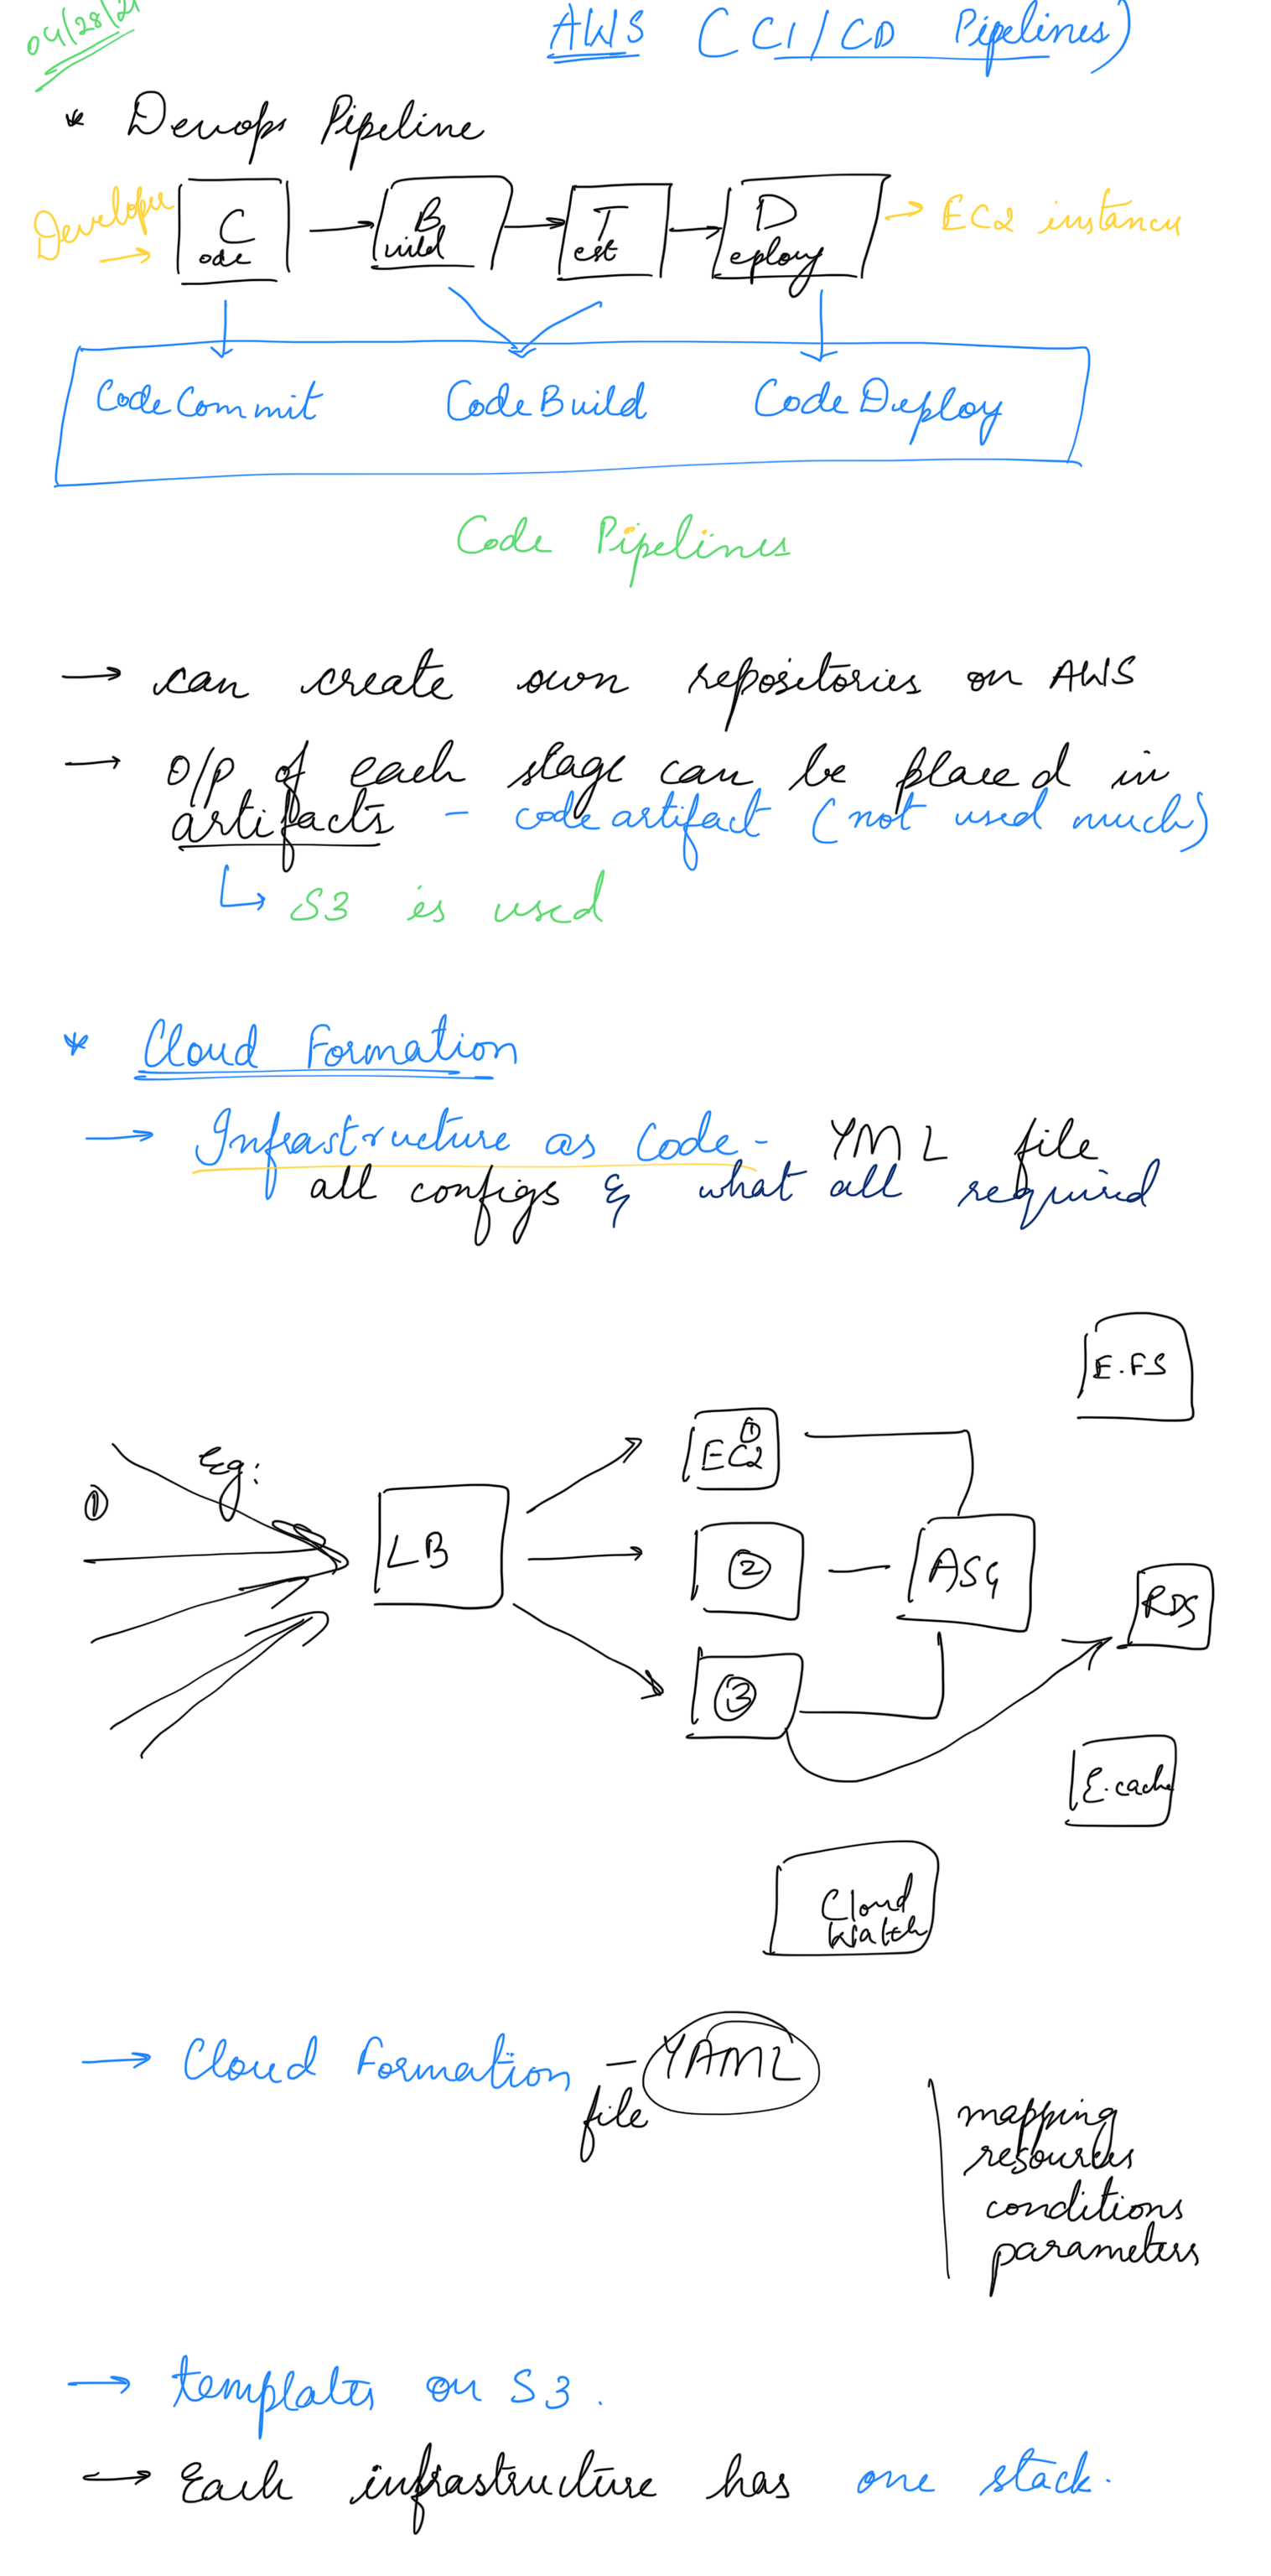 04/28/21
AWS (CI/CD Pipelines)
* Devops Pipeline
Developer → Code → Build → Test → Deploy → EC2 instance
CodeCommit CodeBuild CodeDeploy
Code Pipelines
→ can create own repositories on AWS
→ O/P of each stage can be placed in
artifacts - code artifact (not used much)
↳ S3 is used
* Cloud Formation
→ Infrastructure as Code - YML file
all configs & what all required
E.FS
Eg:
①
EC2 ①
LB
②
ASG
RDS
③
E.cache
Cloud
Watch
→ Cloud Formation - YAML
file
mapping
resources
conditions
parameters
→ templates on S3.
→ Each infrastructure has one stack.